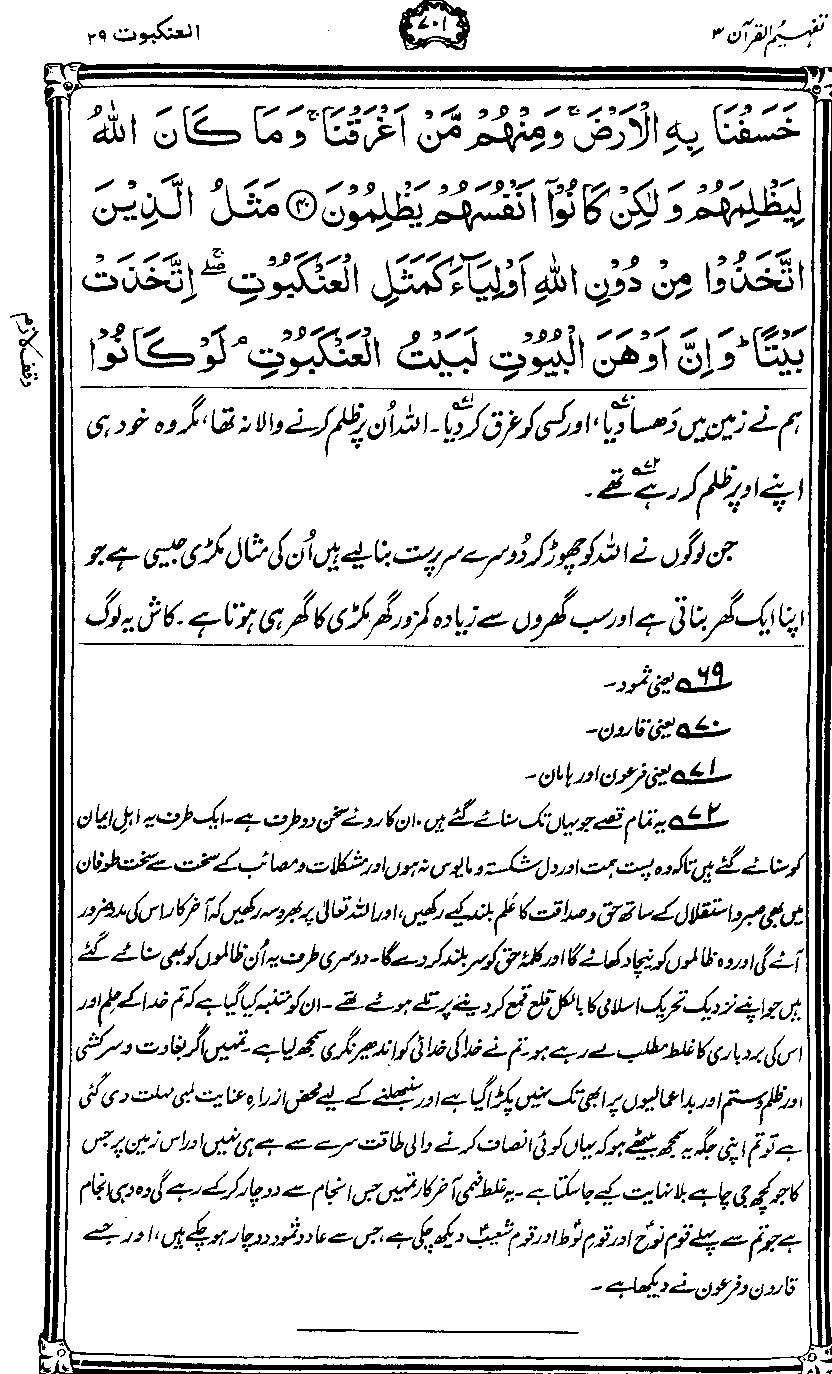 تفہیم القرآن ۳
۷۰۱
العنکبوت ۲۹
خَسَفْنَا بِهِ الْاَرْضَ ۚ وَمِنْهُمْ مَّنْ اَغْرَقْنَا ۚ وَمَا كَانَ اللّٰهُ
لِيَظْلِمَهُمْ وَلٰكِنْ كَانُوْۤا اَنْفُسَهُمْ يَظْلِمُوْنَ ﴿۴۰﴾ مَثَلُ الَّذِيْنَ
اتَّخَذُوْا مِنْ دُوْنِ اللّٰهِ اَوْلِيَآءَ كَمَثَلِ الْعَنْكَبُوْتِ ۖۚ اِتَّخَذَتْ
بَيْتًا ؕ وَاِنَّ اَوْهَنَ الْبُيُوْتِ لَبَيْتُ الْعَنْكَبُوْتِ ۘ لَوْ كَانُوْا
وقف لازم
ہم نے زمین میں دَھسا دیا۷۰، اور کسی کو غرق کر دیا۷۱۔ اللہ اُن پر ظلم کرنے والا نہ تھا، مگر وہ خود ہی
اپنے اوپر ظلم کر رہے۷۲ تھے۔
جن لوگوں نے اللہ کو چھوڑ کر دُوسرے سرپرست بنا لیے ہیں اُن کی مثال مکڑی جیسی ہے جو
اپنا ایک گھر بناتی ہے اور سب گھروں سے زیادہ کمزور گھر مکڑی کا گھر ہی ہوتا ہے۔ کاش یہ لوگ
۶۹ یعنی ثمود۔
۷۰ یعنی قارون۔
۷۱ یعنی فرعون اور ہامان۔
۷۲ یہ تمام قصے جو یہاں تک سنائے گئے ہیں، ان کا روئے سخن دو طرف ہے۔ ایک طرف یہ اہلِ ایمان
کو سنائے گئے ہیں تاکہ وہ پست ہمت اور دل شکستہ و مایوس نہ ہوں اور مشکلات و مصائب کے سخت سے سخت طوفان
میں بھی صبر و استقلال کے ساتھ حق و صداقت کا عَلم بلند کیے رکھیں، اور اللہ تعالیٰ پر بھروسہ رکھیں کہ آخر کار اس کی مدد ضرور
آئے گی اور وہ ظالموں کو نیچا دکھائے گا اور کلمۂ حق کو سر بلند کر دے گا۔ دوسری طرف یہ اُن ظالموں کو بھی سنائے گئے
ہیں جو اپنے نزدیک تحریک اسلامی کا بالکل قلع قمع کر دینے پر تُلے ہوئے تھے۔ ان کو متنبہ کیا گیا ہے کہ تم خدا کے حلم اور
اس کی بردباری کا غلط مطلب لے رہے ہو۔ تم نے خدا کی خدائی کو اندھیر نگری سمجھ لیا ہے۔ تمہیں اگر بغاوت و سرکشی
اور ظلم و ستم اور بداعمالیوں پر ابھی تک نہیں پکڑا گیا ہے اور سنبھلنے کے لیے محض از راہِ عنایت لمبی مہلت دی گئی
ہے تو تم اپنی جگہ یہ سمجھ بیٹھے ہو کہ یہاں کوئی انصاف کرنے والی طاقت سرے سے ہے ہی نہیں اور اس زمین پر جس
کا جو کچھ جی چاہے بلا نہایت کیے جا سکتا ہے۔ یہ غلط فہمی آخر کار تمہیں جس انجام سے دوچار کر کے رہے گی وہ وہی انجام
ہے جو تم سے پہلے قومِ نوحؑ اور قومِ لوطؑ اور قومِ شعیبؑ دیکھ چکی ہے، جس سے عاد و ثمود دوچار ہو چکے ہیں، اور جسے
قارون و فرعون نے دیکھا ہے۔